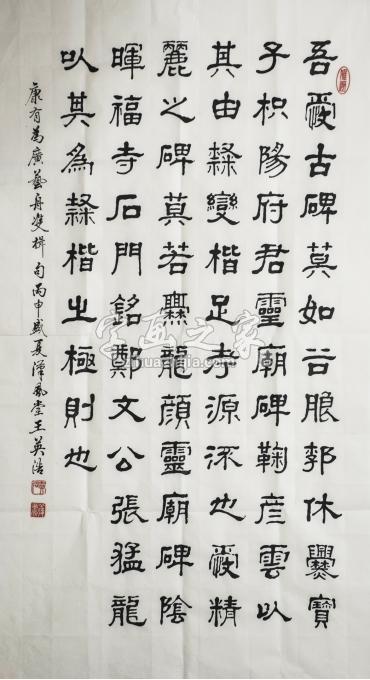 吾愛古碑莫如谷朗郭休爨寶
子枳陽府君靈廟碑鞠彦雲以
其由隸變楷足考源流也愛精
麗之碑莫若爨龍顔靈廟碑陰
暉福寺石門銘鄭文公張猛龍
以其為隸楷之極則也
康有為廣藝舟雙楫句丙申盛夏漢風堂王英浩
字画之家